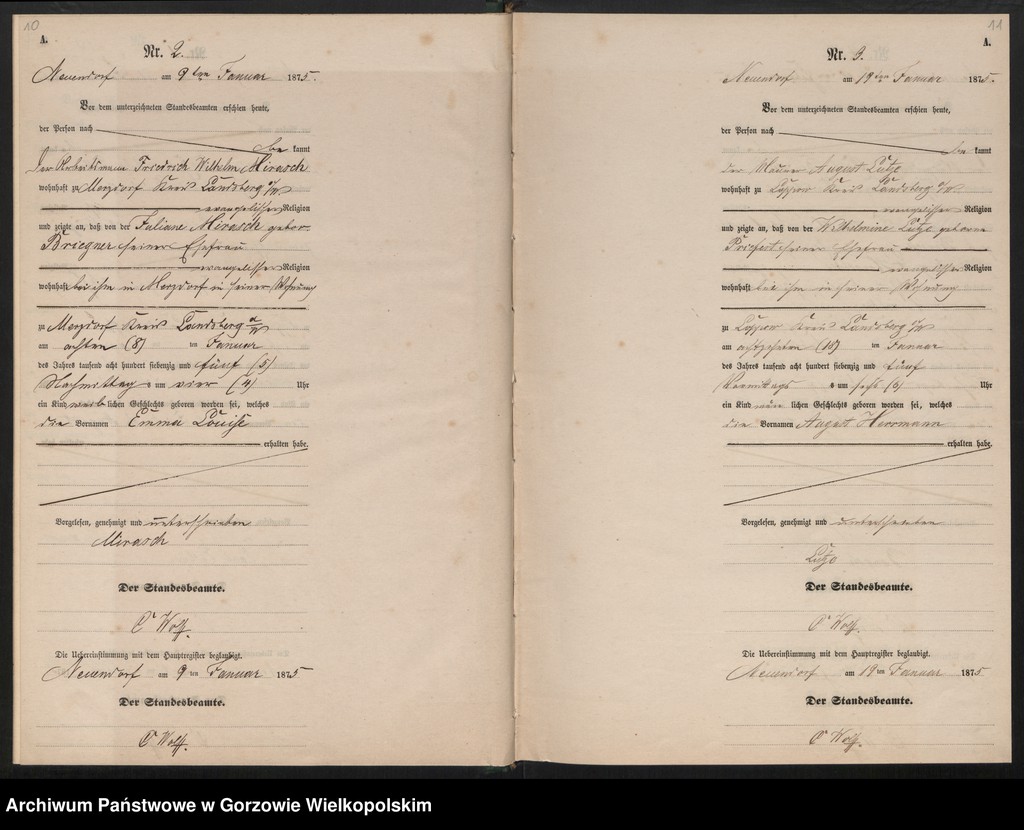 10
A.
Nr. 2.
Neuendorf am 9ten Januar 1875.
Vor dem unterzeichneten Standesbeamten erschien heute,
der Person nach
be kannt
der Arbeitsmann Friedrich Wilhelm Mirasch
wohnhaft zu Merzdorf Kreis Landsberg a/W
evangelischer Religion
und zeigte an, daß von der Juliane Mirasch gebor.
Briegner seiner Ehefrau
evangelischer Religion
wohnhaft bei ihm in Merzdorf in seiner Wohnung
zu Merzdorf Kreis Landsberg a/W
am achten (8) ten Januar
des Jahres tausend acht hundert siebenzig und fünf (5)
Nachmittag s um vier (4) Uhr
ein Kind weib lichen Geschlechts geboren worden sei, welches
die Vornamen Emma Louise
erhalten habe.
Vorgelesen, genehmigt und unterschrieben
Mirasch
Der Standesbeamte.
Wolff.
Die Uebereinstimmung mit dem Hauptregister beglaubigt.
Neuendorf am 9 ten Januar 1875
Der Standesbeamte.
Wolff.
11
A.
Nr. 3.
Neuendorf am 19ten Januar 1875.
Vor dem unterzeichneten Standesbeamten erschien heute,
der Person nach
be kannt
der Maurer August Lutze
wohnhaft zu Loppow Kreis Landsberg a/W
evangelischer Religion
und zeigte an, daß von der Wilhelmine Lutze geborene
Priefert seiner Ehefrau
evangelischer Religion
wohnhaft bei ihm in seiner Wohnung
zu Loppow Kreis Landsberg a/W
am achtzehnten (18) ten Januar
des Jahres tausend acht hundert siebenzig und fünf
Vormittags s um sechs (6) Uhr
ein Kind männ lichen Geschlechts geboren worden sei, welches
die Vornamen August Herrmann
erhalten habe.
Vorgelesen, genehmigt und unterschrieben
Lutze
Der Standesbeamte.
Wolff.
Die Uebereinstimmung mit dem Hauptregister beglaubigt.
Neuendorf am 19 ten Januar 1875
Der Standesbeamte.
Wolff.
Archiwum Państwowe w Gorzowie Wielkopolskim